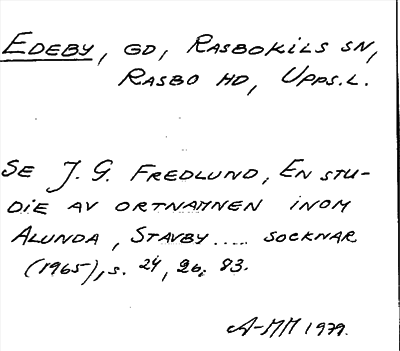 EDEBY, GD, RASBOKILS SN,
RASBO HD, UPPS.L.
SE J. G. FREDLUND, EN STU-
DIE AV ORTNAMNEN INOM
ALUNDA, STAVBY..... SOCKNAR
(1965), s. 24, 26, 83.
A-MM 1979.